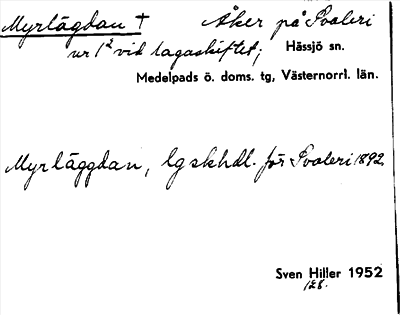 Myrlägdan † Åker på Svaleri
nr 1² vid lagaskiftet; Hässjö sn.
Medelpads ö. doms. tg, Västernorrl. län.
Myrläggdan, lgskhdl. för Svaleri 1892
Sven Hiller 1952
128.